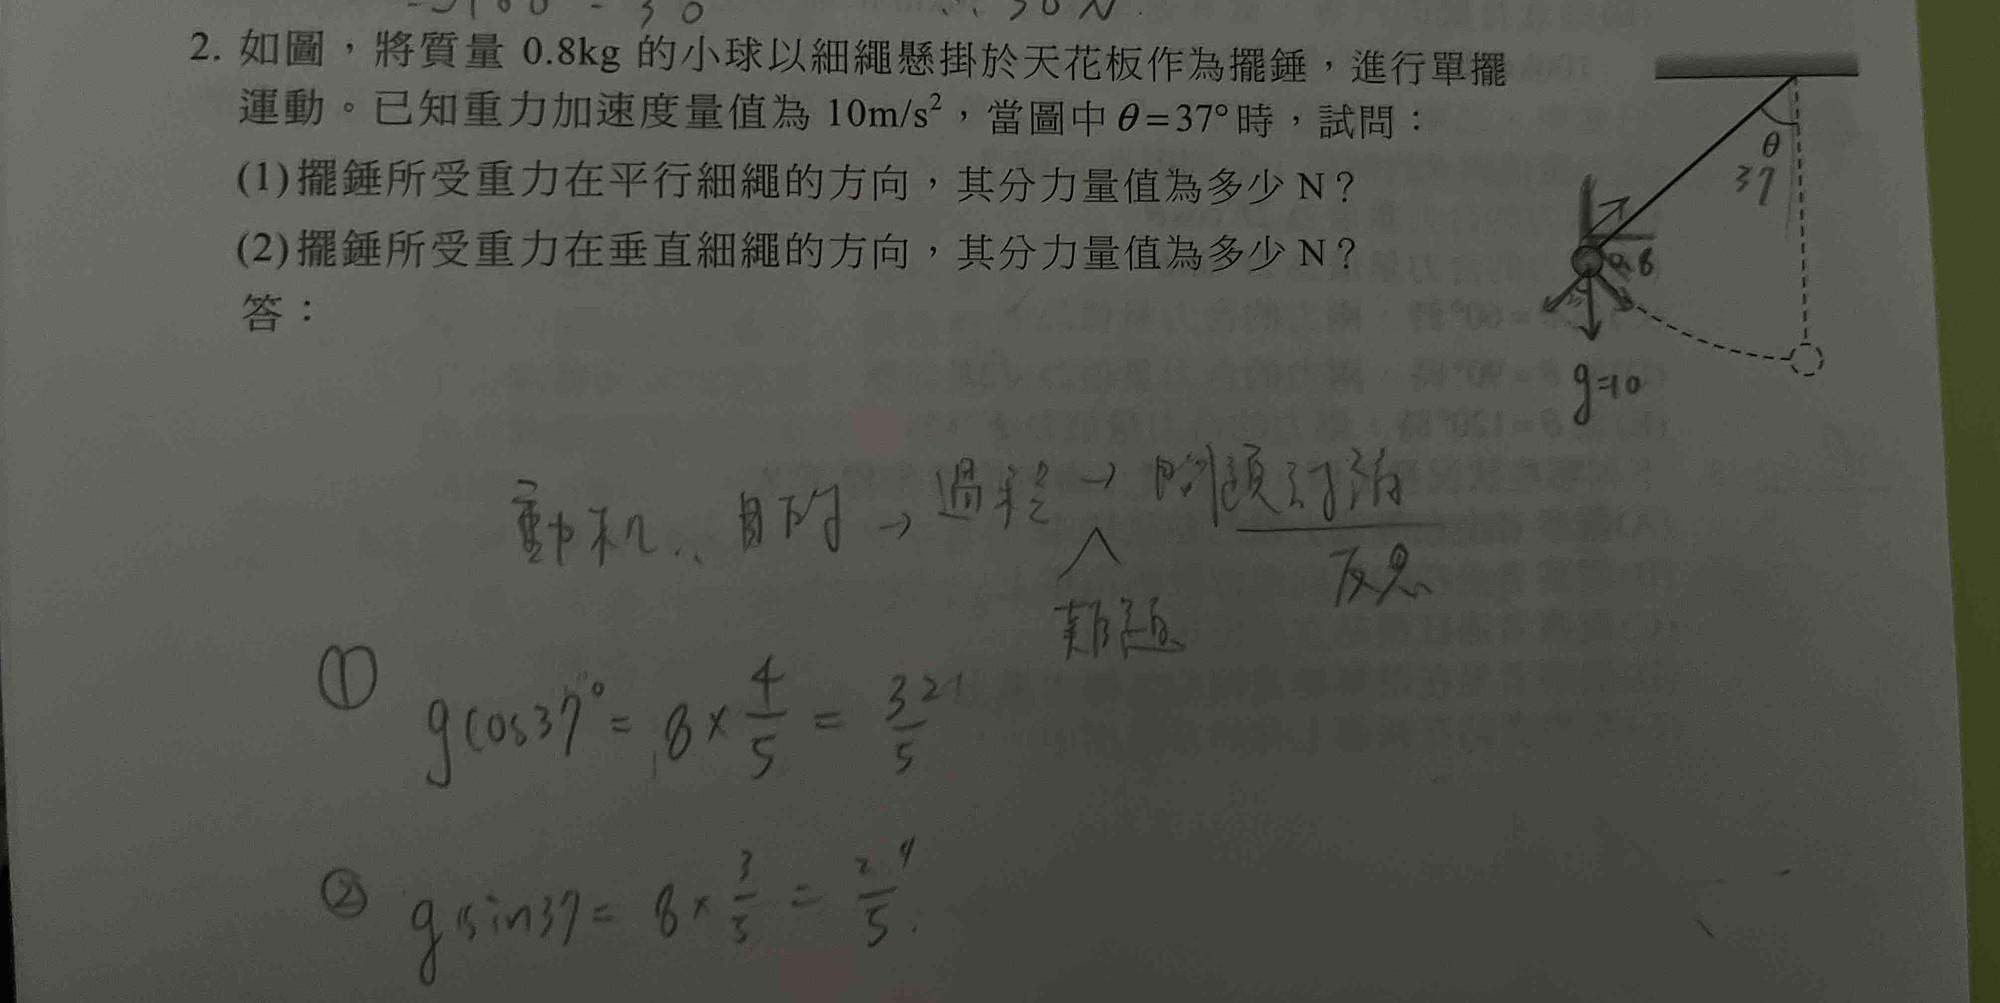 30N
2. 如圖，將質量 0.8kg 的小球以細繩懸掛於天花板作為擺錘，進行單擺
運動。已知重力加速度量值為 10m/s²，當圖中 θ=37°時，試問：
(1)擺錘所受重力在平行細繩的方向，其分力量值為多少 N？
(2)擺錘所受重力在垂直細繩的方向，其分力量值為多少 N？
答：
θ
37
0.8
g=10
動机、目的→過程→問題討論
反思
難題
① gcos37°= 8×4/5 = 32/5
② gsin37= 8×3/5 = 24/5